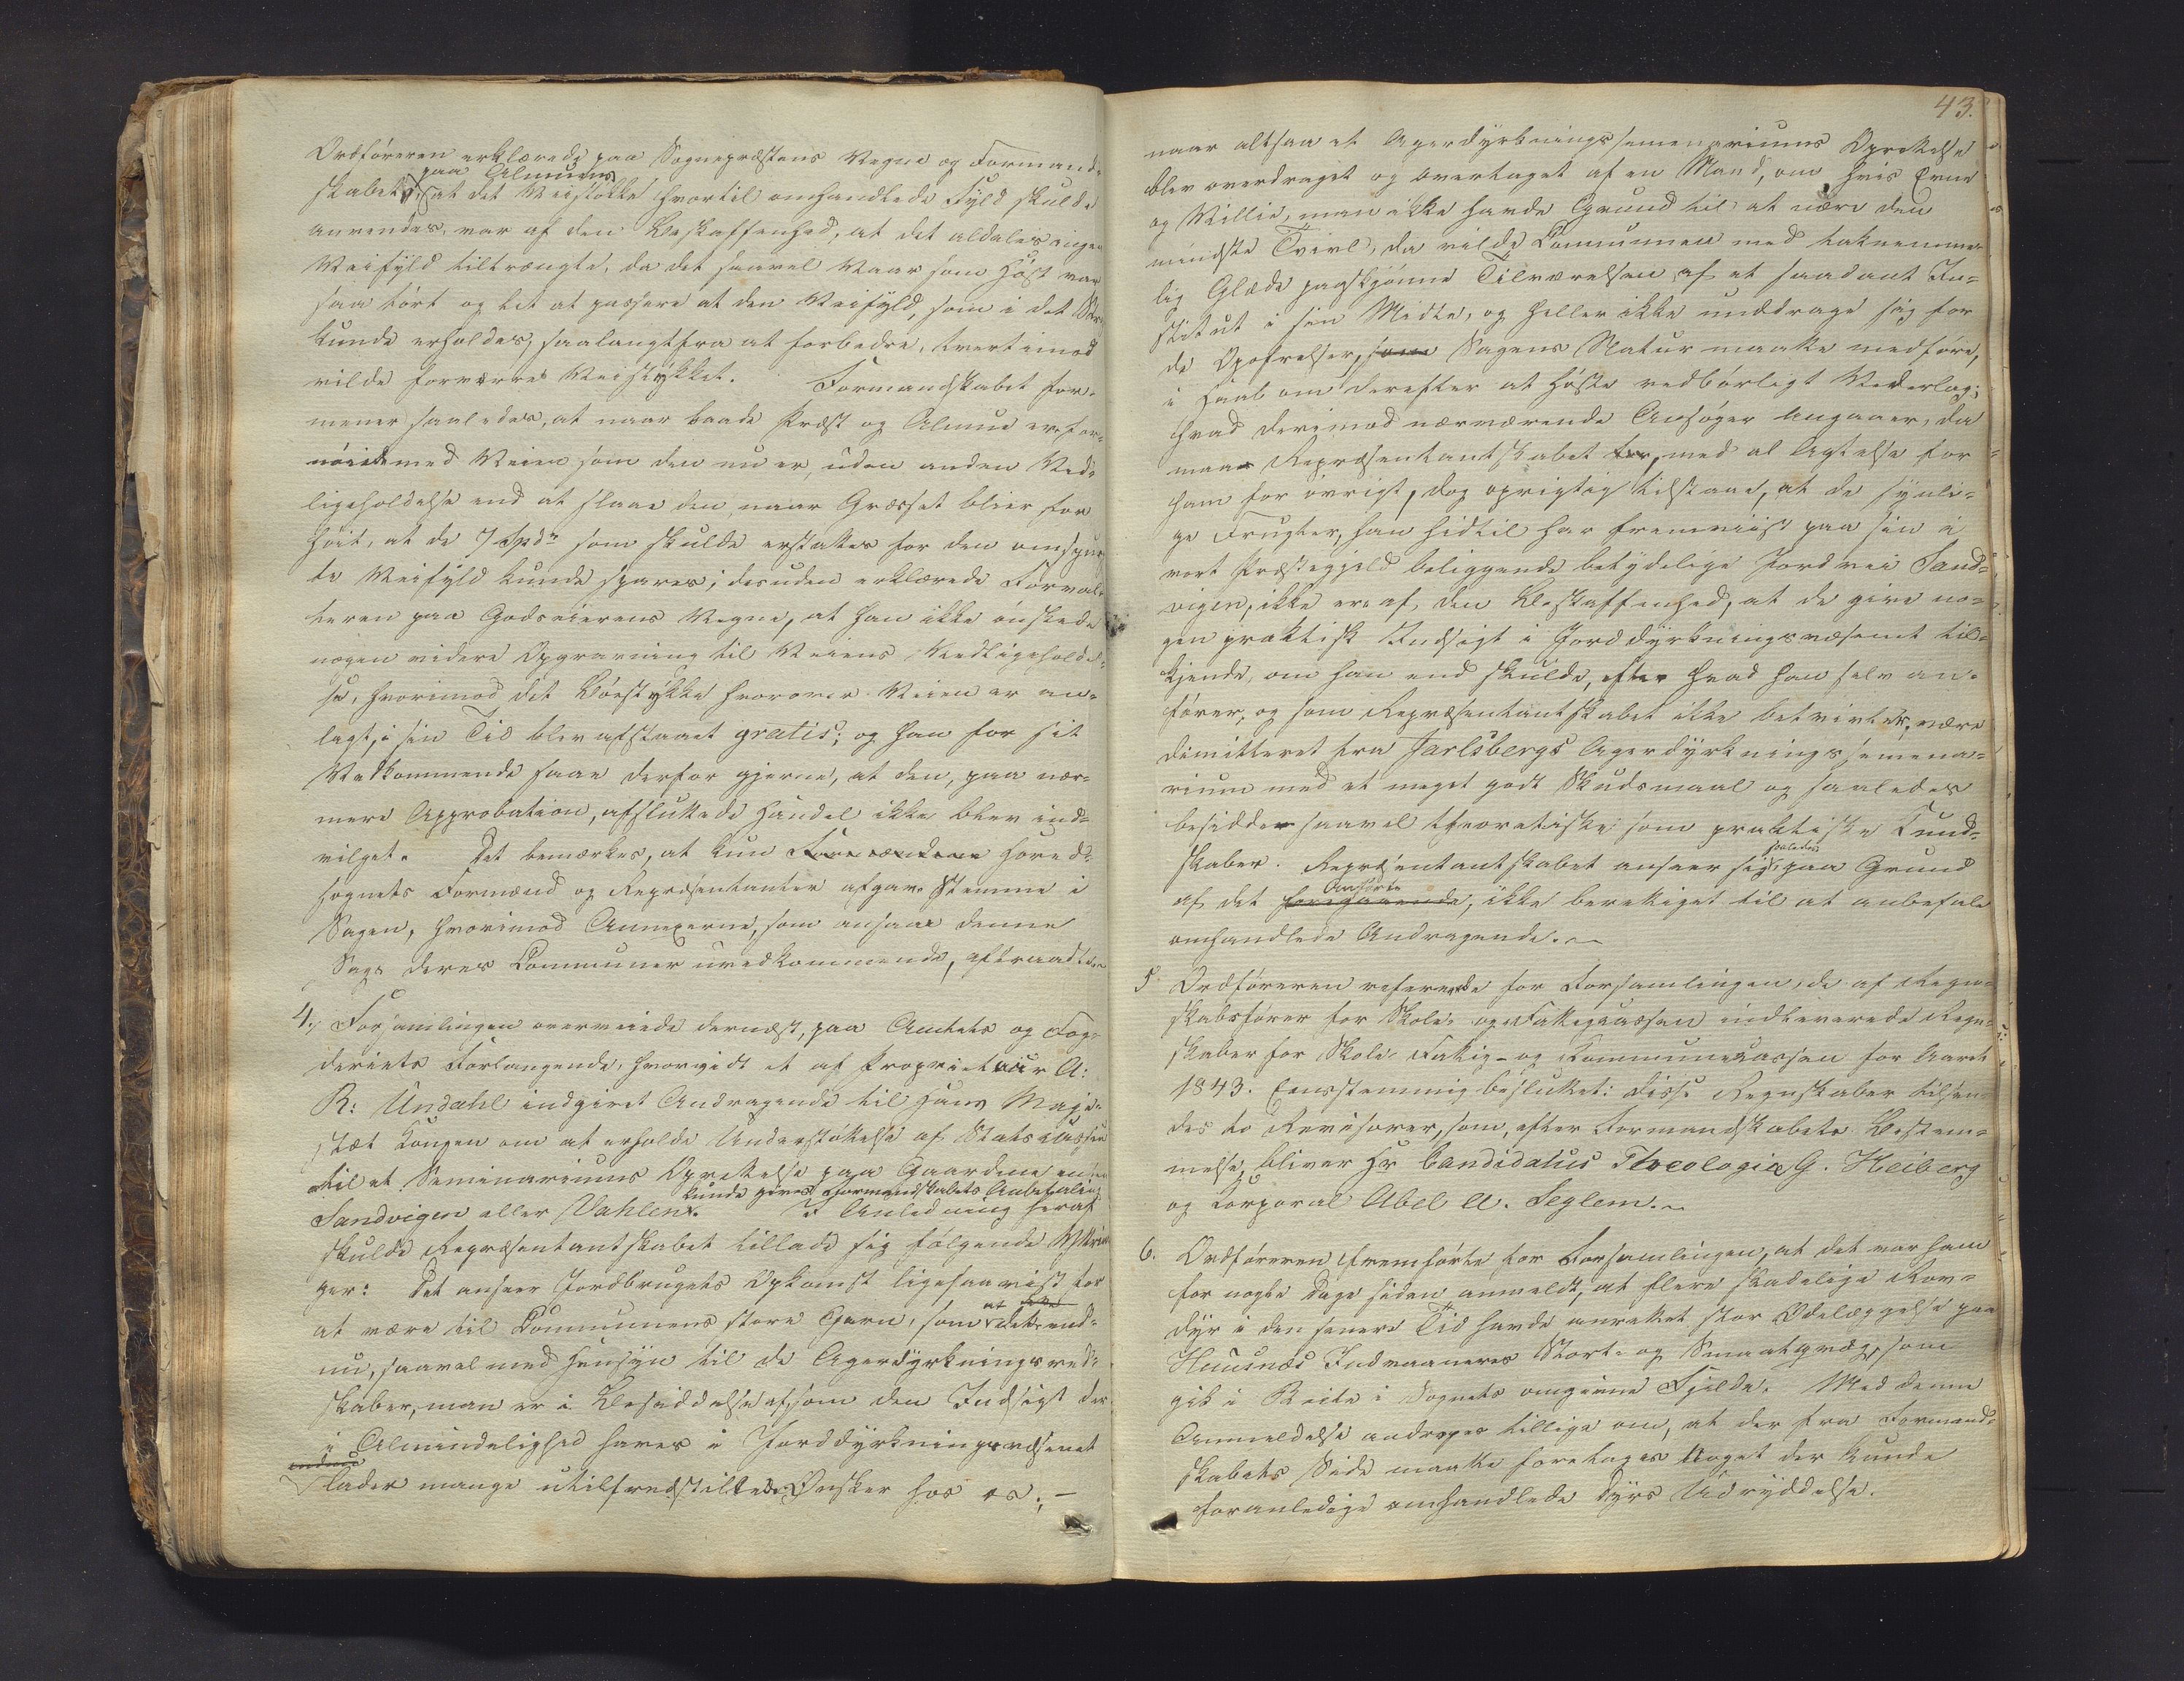 Ordføreren erklærede paa Sognepræstens Vegne og Formand-
paa Almuens
skabet, at det Veistøkke hvortil omhandlede Fyld skulde
anvendes, var af den Beskaffenhed, at det aldeles ingen
Veifyld tiltrængte, da det saavel Vaar som Høst var
saa tørt og let at passere at den Veifyld, som i det
kunde erholdes, saalangtfra at forbedre, tvertimod
vilde forværre Veistykket. Formandskabet for-
mener saaledes, at naar baade Præst og Almue ere for-
nøiede med Veien som den nu er, uden anden Ved-
ligeholdelse end at slaae den, naar Græsset blier for
høit, at de 7 Spd som skulde erstattes for den omspurg-
te Veifyld kunde spares; desuden erklærede Forval-
teren paa Godseierens Vegne, at han ikke ønskede
nogen videre Opgravning til Veiens Vedligeholdel-
se, hvorimod det Bøestykke hvorover Veien er an-
lagt, i sin Tid blev afstaaet gratis; og han for sit
Vedkommende saae derfor gjerne, at den, paa nær-
mere Approbation, afsluttede Handel ikke blev ind-
vilget. Det bemærkes, at kun Hoved-
sognets Formænd og Repræsentanter afgave Stemme i
Sagen, hvorimod Annexerne, som ansaae denne
Sag deres Communer uvedkommende, aftraadte
4, Forsamlingen overveiede dernæst, paa Amtets og Fog-
deriets Forlangende, hvorvidt et af Proprietair A:
R: Undahl indgivet Andragende til Hans Maje-
stæt Kongen om at erholde Understøttelse af Statscassen
til et Seminariums Oprettelse paa Gaardene enten
kunde gives Formandskabets Anbefaling
Sandvigen eller Vahlen. I Anledning heraf
skulde Repræsentantskabet tillade sig følgende Yttrin
ger: Det anseer Jordbrugets Opkomst ligesaa vist for
at være til Communens store Gavn, som at det end-
nu, saavel med Hensyn til de Agerdyrkningsred-
skaber, man er i Besiddelse af, som den Indsigt der
i Almindelighed haves i Jorddyrkningsvæsenet
endnu
lader mange utilfredsstillede Ønsker hos os; —
43.
naar altsaa et Agerdyrkningssemenariums Oprettelse
blev overdraget og overtaget af en Mand, om hvis Evne
og Villie, man ikke havde Grund til at nære den
mindste Tvivl, da vilde Communen med taknemme-
lig Glæde paaskjønne Tilværelsen af et saadant In-
stitut i sin Midte, og heller ikke unddrage sig for
de Opofrelser, som Sagens Natur maatte medføre,
i Haab om derefter at høste vedbørligt Vederlag;
hvad derimod nærværende Ansøger angaaer, da
maa Repræsentantskabet med al Agtelse for
ham for øvrigt, dog oprigtig tilstaae, at de synli-
ge Frugter, han hidtil har fremviist paa sin i
vort Præstegjeld beliggende betydelige Jordvei Sand-
vigen, ikke ere af den Beskaffenhed, at de give no-
gen praktisk Indsigt i Jorddyrkningsvæsenet til-
kjende, om han end skulde, efter hvad han selv an-
fører, og som Repræsentantskabet ikke betvivler, være
dimitteret fra Jarlsbergs Agerdyrkningssemena-
rium med et meget godt Skudsmaal og saaledes
besidder saavel theoretiske som praktiske Kund-
saaledes
skaber. Repræsentantskabet anseer sig, paa Grund
Anførte
af det foregaaende, ikke berettiget til at anbefale
omhandlede Andragende.
5 Ordføreren refererede for Forsamlingen, de af Regn-
skabsfører for Skole- og Fattigcassen indleverede Regn-
skaber for Skole- Fattig- og Kommunecassen for Aaret
1843. Eensstemmig besluttet: disse Regnskaber tilsen-
des to Revisorer, som, efter Formandskabets Bestem-
melse, bliver Hr Candidatus Theologiæ G. Heiberg
og Korporal Abel A. Seglem.
6. Ordføreren fremførte for Forsamlingen, at det var ham
for nogle Dage siden anmeldt, at flere skadelige Rov-
dyr i den senere Tid havde anrettet stor Ødelæggelse paa
Huusnæs Indvaaneres Stort- og Smaatqvæg, som
gik i Beite i Sognets omgivne Fjelde. Med denne
Anmeldelse androges tillige om, at der fra Formand-
skabets Side maatte foretages Noget der kunde
foranledige omhandlede Dyrs Udryddelse.